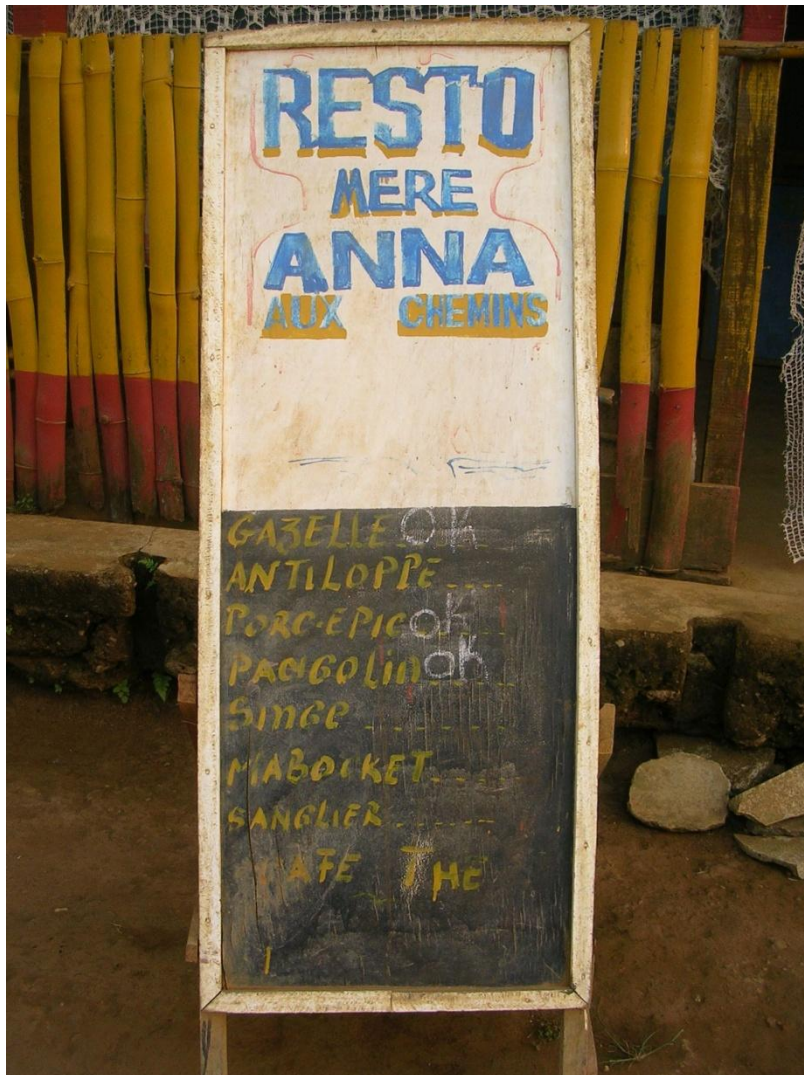 RESTO
MERE
ANNA
AUX CHEMINS
GAZELLE OK
ANTILOPPE ....
PORC-EPIC OK
PANGOLIN OK
SINGE ........
MABOCKET....
SANGLIER ......
CAFE THE